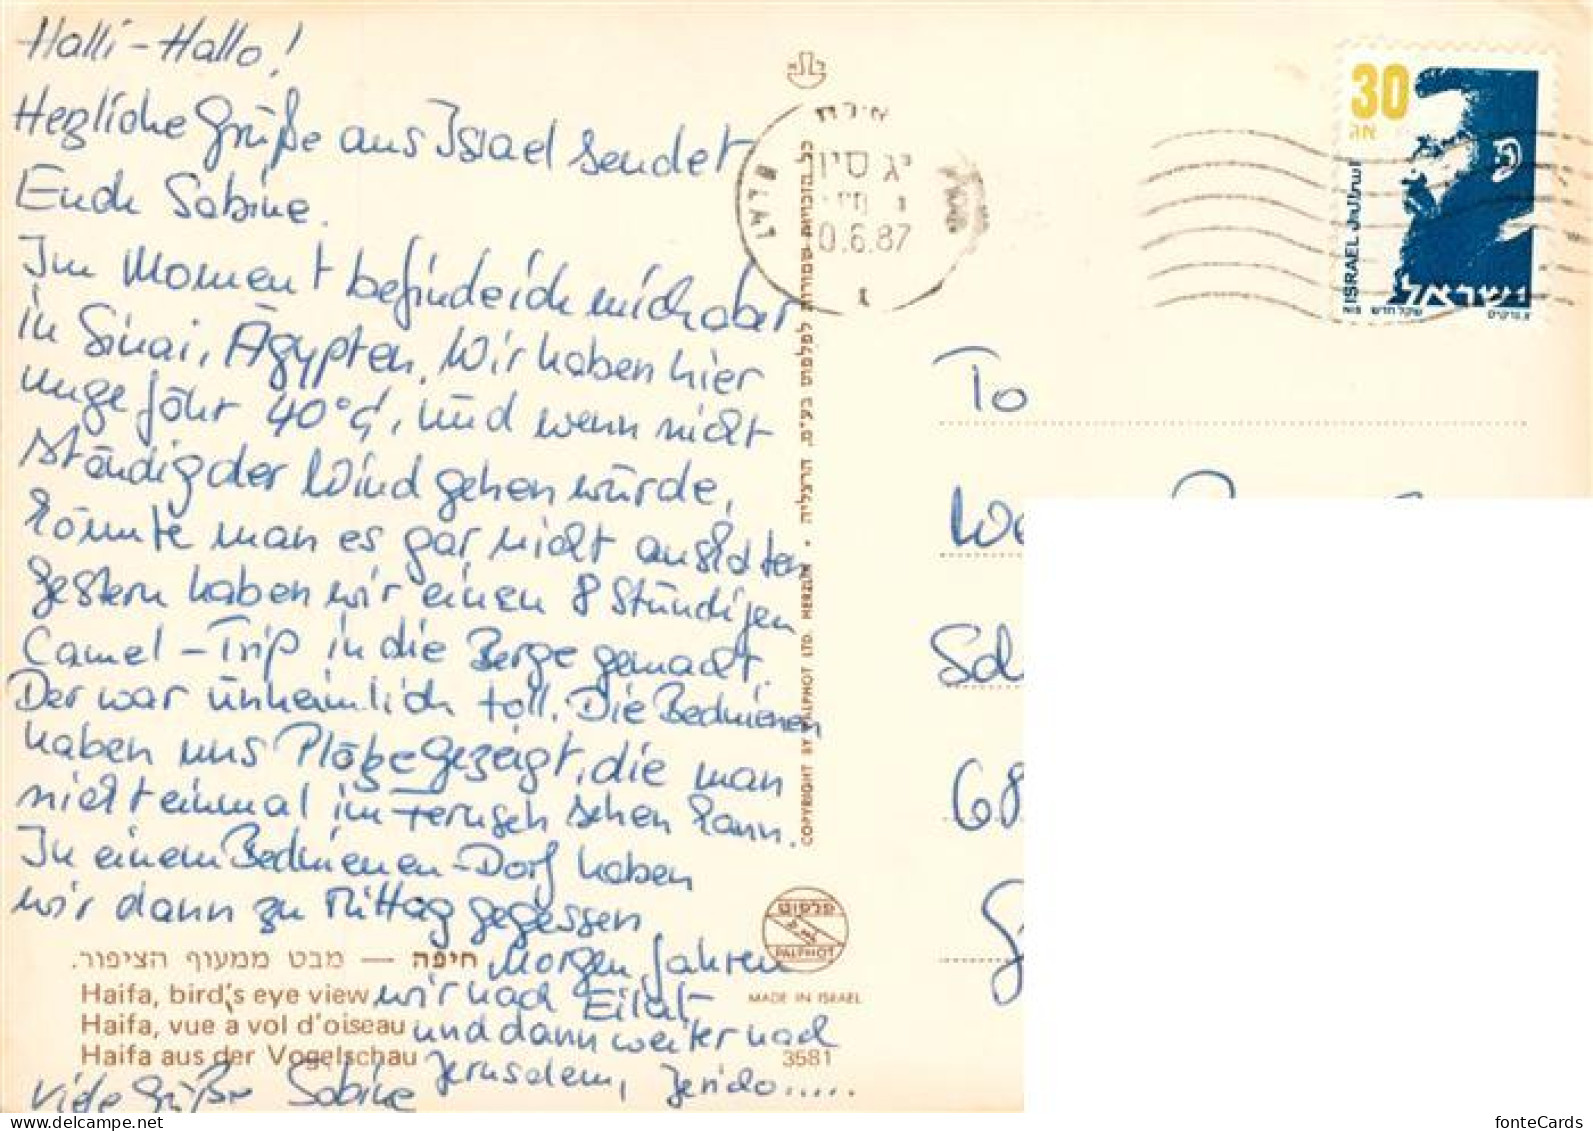 Halli-Hallo!
Herzliche Grüße aus Israel sendet
Euch Sabine.
Im Moment befinde ich mich aber
in Sinai, Ägypten. Wir haben hier
ungefähr 40°C, und wenn nicht
ständig der Wind gehen würde,
könnte man es gar nicht aushalten
Gestern haben wir einen 8 Stündigen
Camel-Trip in die Berge gemacht.
Der war unheimlich toll. Die Beduienen
haben uns Plätze gezeigt, die man
nicht einmal im Fernseh sehen kann.
In einem Beduienen-Dorf haben
wir dann zu Mittag gegessen
Morgen fahren
wir nach Eilat
und dann weiter nach
Jerusalem, Jericho.....
Viele Grüße Sabine
חיפה — מבט ממעוף הציפור.
Haifa, bird's eye view
Haifa, vue à vol d'oiseau
Haifa aus der Vogelschau
כל הזכויות שמורות לפלפוט בע"מ, הרצליה • COPYRIGHT BY PALPHOT LTD. HERZLIA
פלפוט
PALPHOT
MADE IN ISRAEL
3581
אילת
יג סיון
0.6.87
ELAT
1
30
אג
ISRAEL اسرائيل
ישראל
NIS שקל חדש
To
68
fonteCards